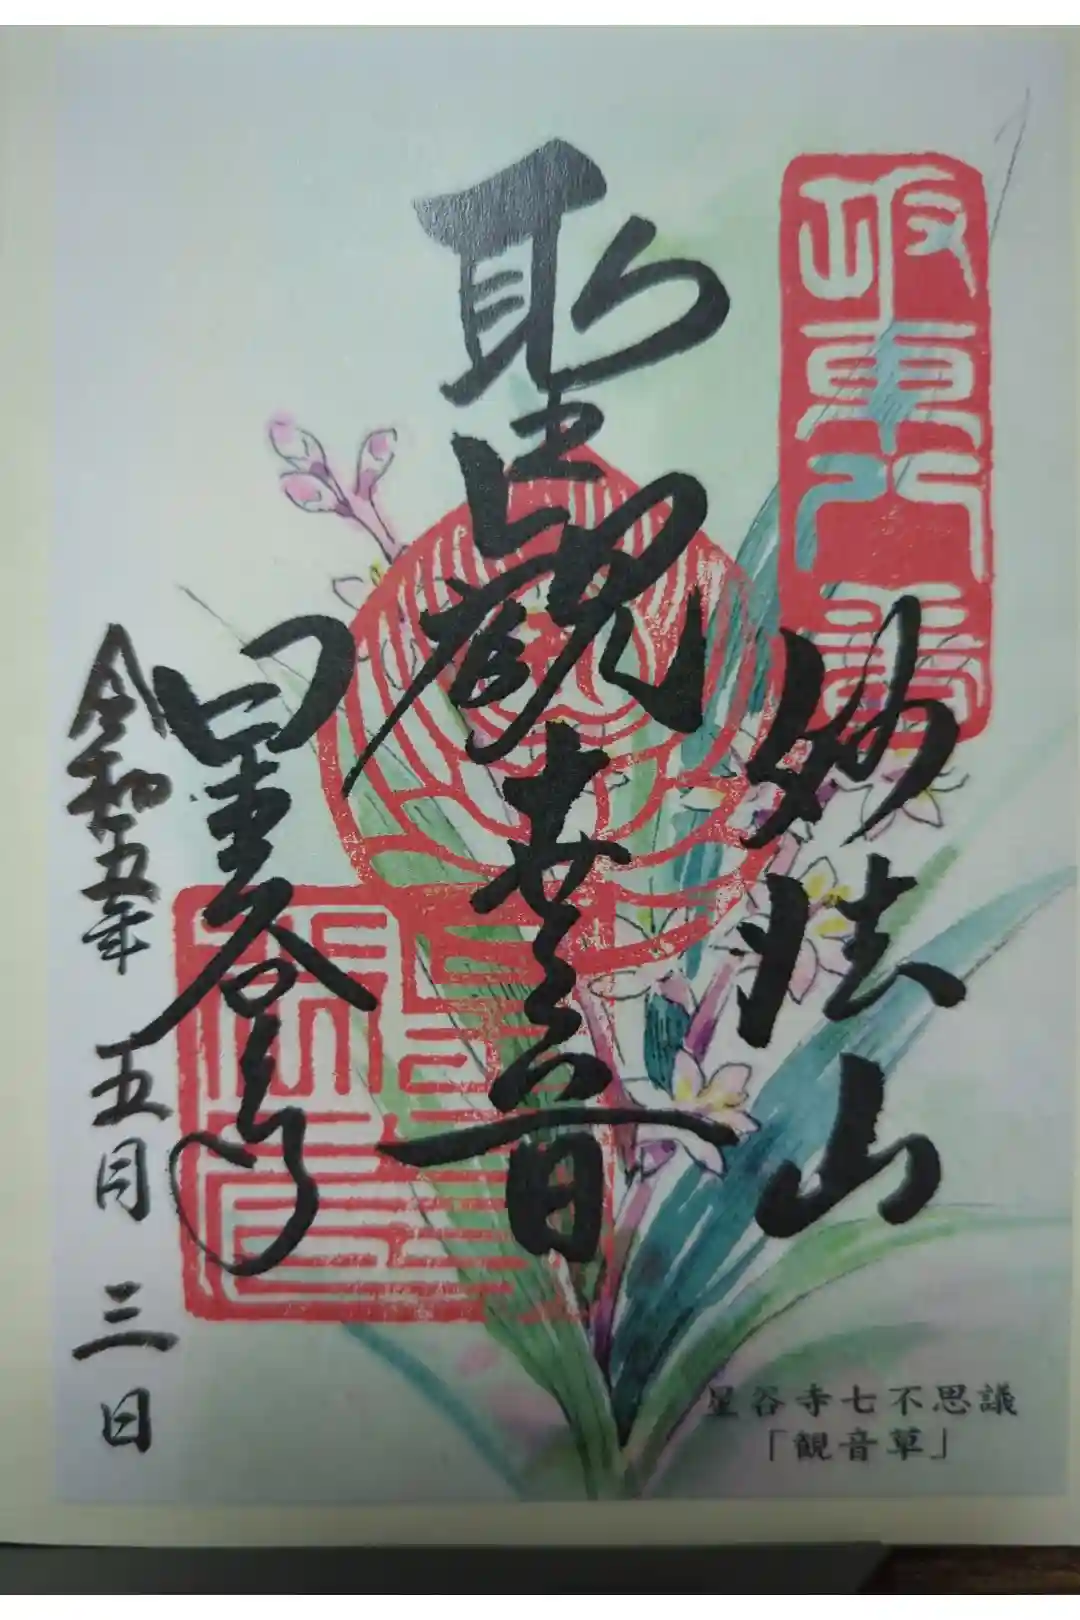 坂東八番
妙法山
聖観世音
星谷寺
令和五年 五月 三日
星谷寺七不思議
「観音草」